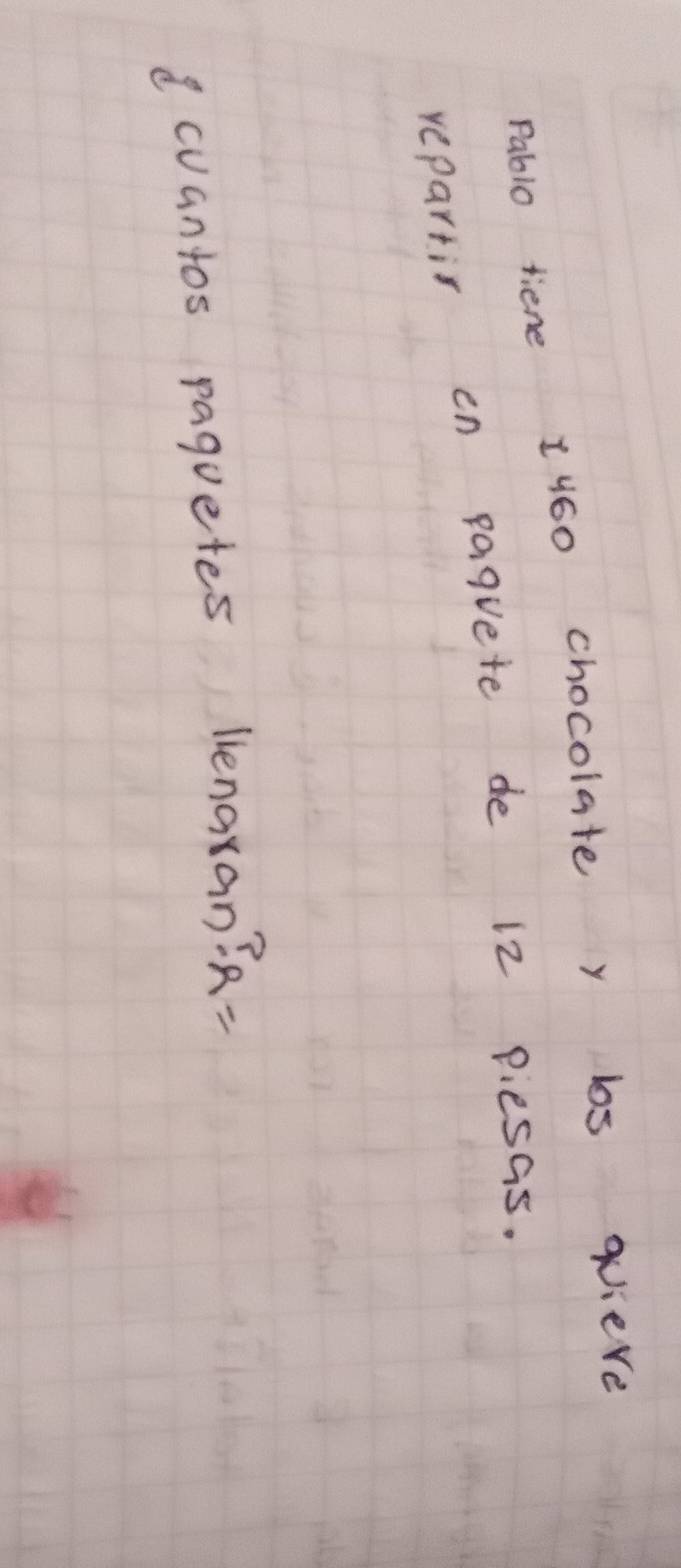 Pablo tiene 1460 chocolate y los quiere
repartir en paquete de 12 piesas.
¿cuantos paquetes llenaran? R=